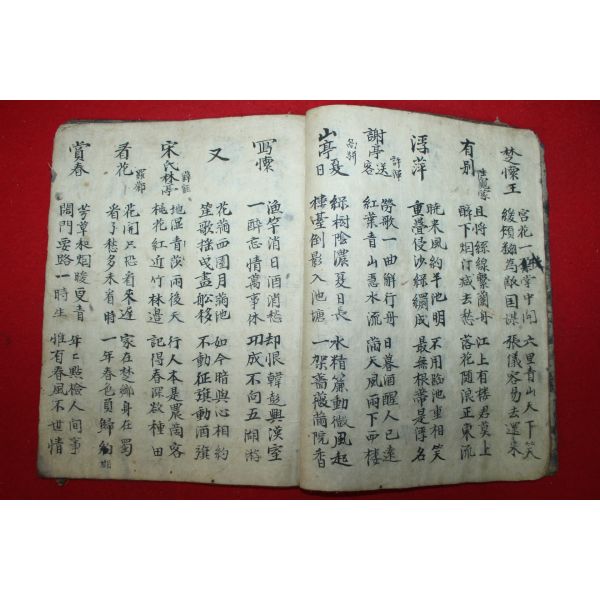 楚懷王
宮花一朶掌中開 六里青山天下笑
緩頰飜為敵国謀 張儀容易去還来
有別 陸龜蒙
且將絲線繫蘭舟 江上有樓君莫上
醉下烟汀減去愁 落花隨浪正東流
浮萍
晩来風約半池明 不用臨池重相笑
重疊侵沙綠罽成 最無根帶是浮名
謝亭送客 許渾
勞歌一曲觧行舟 日暮酒醒人已遠
紅葉青山急水流 滿天風雨下西樓
山亭夏日 高駢
綠樹陰濃夏日長 水精簾動微風起
樓臺倒影入池塘 一架薔薇滿院香
寫懷
漁竿消日酒消愁 却恨韓彭興漢室
一醉忘情萬事休 功成不向五湖游
又
花滿西園月滿池 如今暗與心相約
笙歌搖曳畫船移 不動征旗動酒旗
宋氏林亭 薛能
地濕青莎雨後天 行人本是農桑客
桃花紅近竹林邊 記得春深欲種田
看花 羅鄴
花開只恐看來遲 家在楚鄕身在蜀
看了愁多未看時 一年春色負歸期
賞春
芳草和烟暖更青 年〻點檢人間事
閑門要路一時生 惟有春風不世情